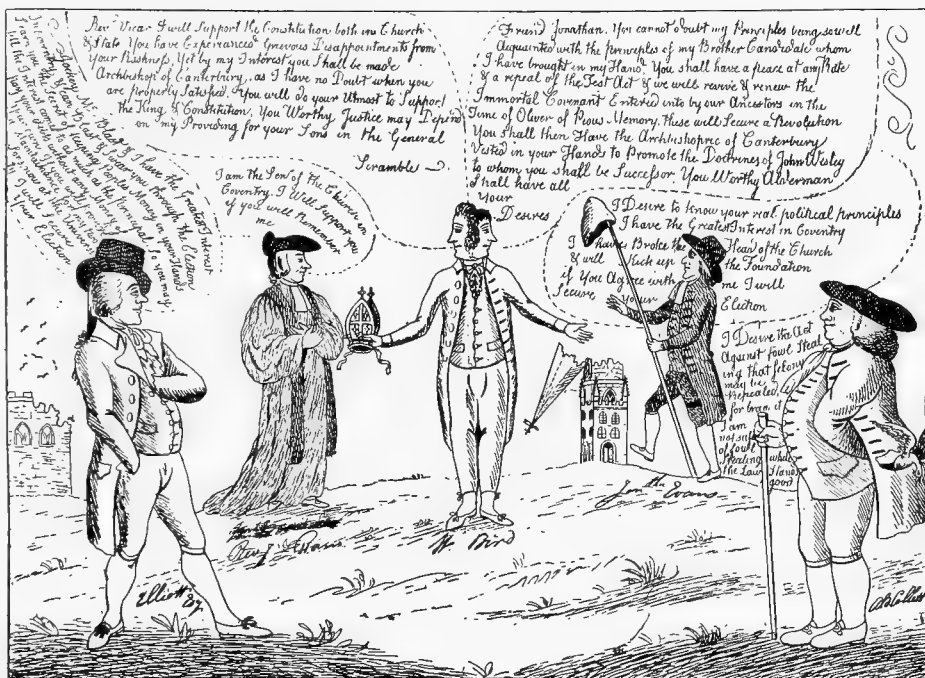 Revd Vicar I will Support the Constitution both in Church
& State You have Experianced Grevous Disappointments from
Your Rashness, Yet by my Interest you Shall be made
Archbishop of Canterbury, as I have no Doubt when you
are properly Satisfied, You will do your Utmost to Support
the King & Constitution, You Worthy Justice may Depend
on my Providing for your Sons in the General
Scramble
Friend Jonathan, You cannot doubt my Principles being so well
Acquainted with the principles of my Brother Candidate whom
I have brought in my Hand, You shall have a peace at any Rate
& a repeal of the Test Act & we will revive & renew the
Immortal Covenant Entered into by our Ancestors in the
Time of Oliver of Pious Memory, these will Secure a Revolution
You Shall then Have the Archbishopric of Canterbury
Vested in your Hands to Promote the Doctrines of John Wesley
to whom you shall be Successor You Worthy Alderman
Shall have all
Your
Desires
I am the Son of the Church in
Coventry. I Will Support you
if you will Remember
me
I Desire to know your real political principles
I have the Greatest Interest in Coventry
I have Broke the Head of the Church
& will Kick up the Foundation
if You Agree with me I will
Secure Your Election
I Desire the Act
Against fowl Steal
ing that felony
may be
Repealed,
for
I am
not safe
of fowl
Stealing while
the Law Stands
good
I have the Greatest Interest
in Coventry
the Election
Peoples Money in your Hands
Election
Elliott Esq.
Revd J
W Bird
Jonn Evans